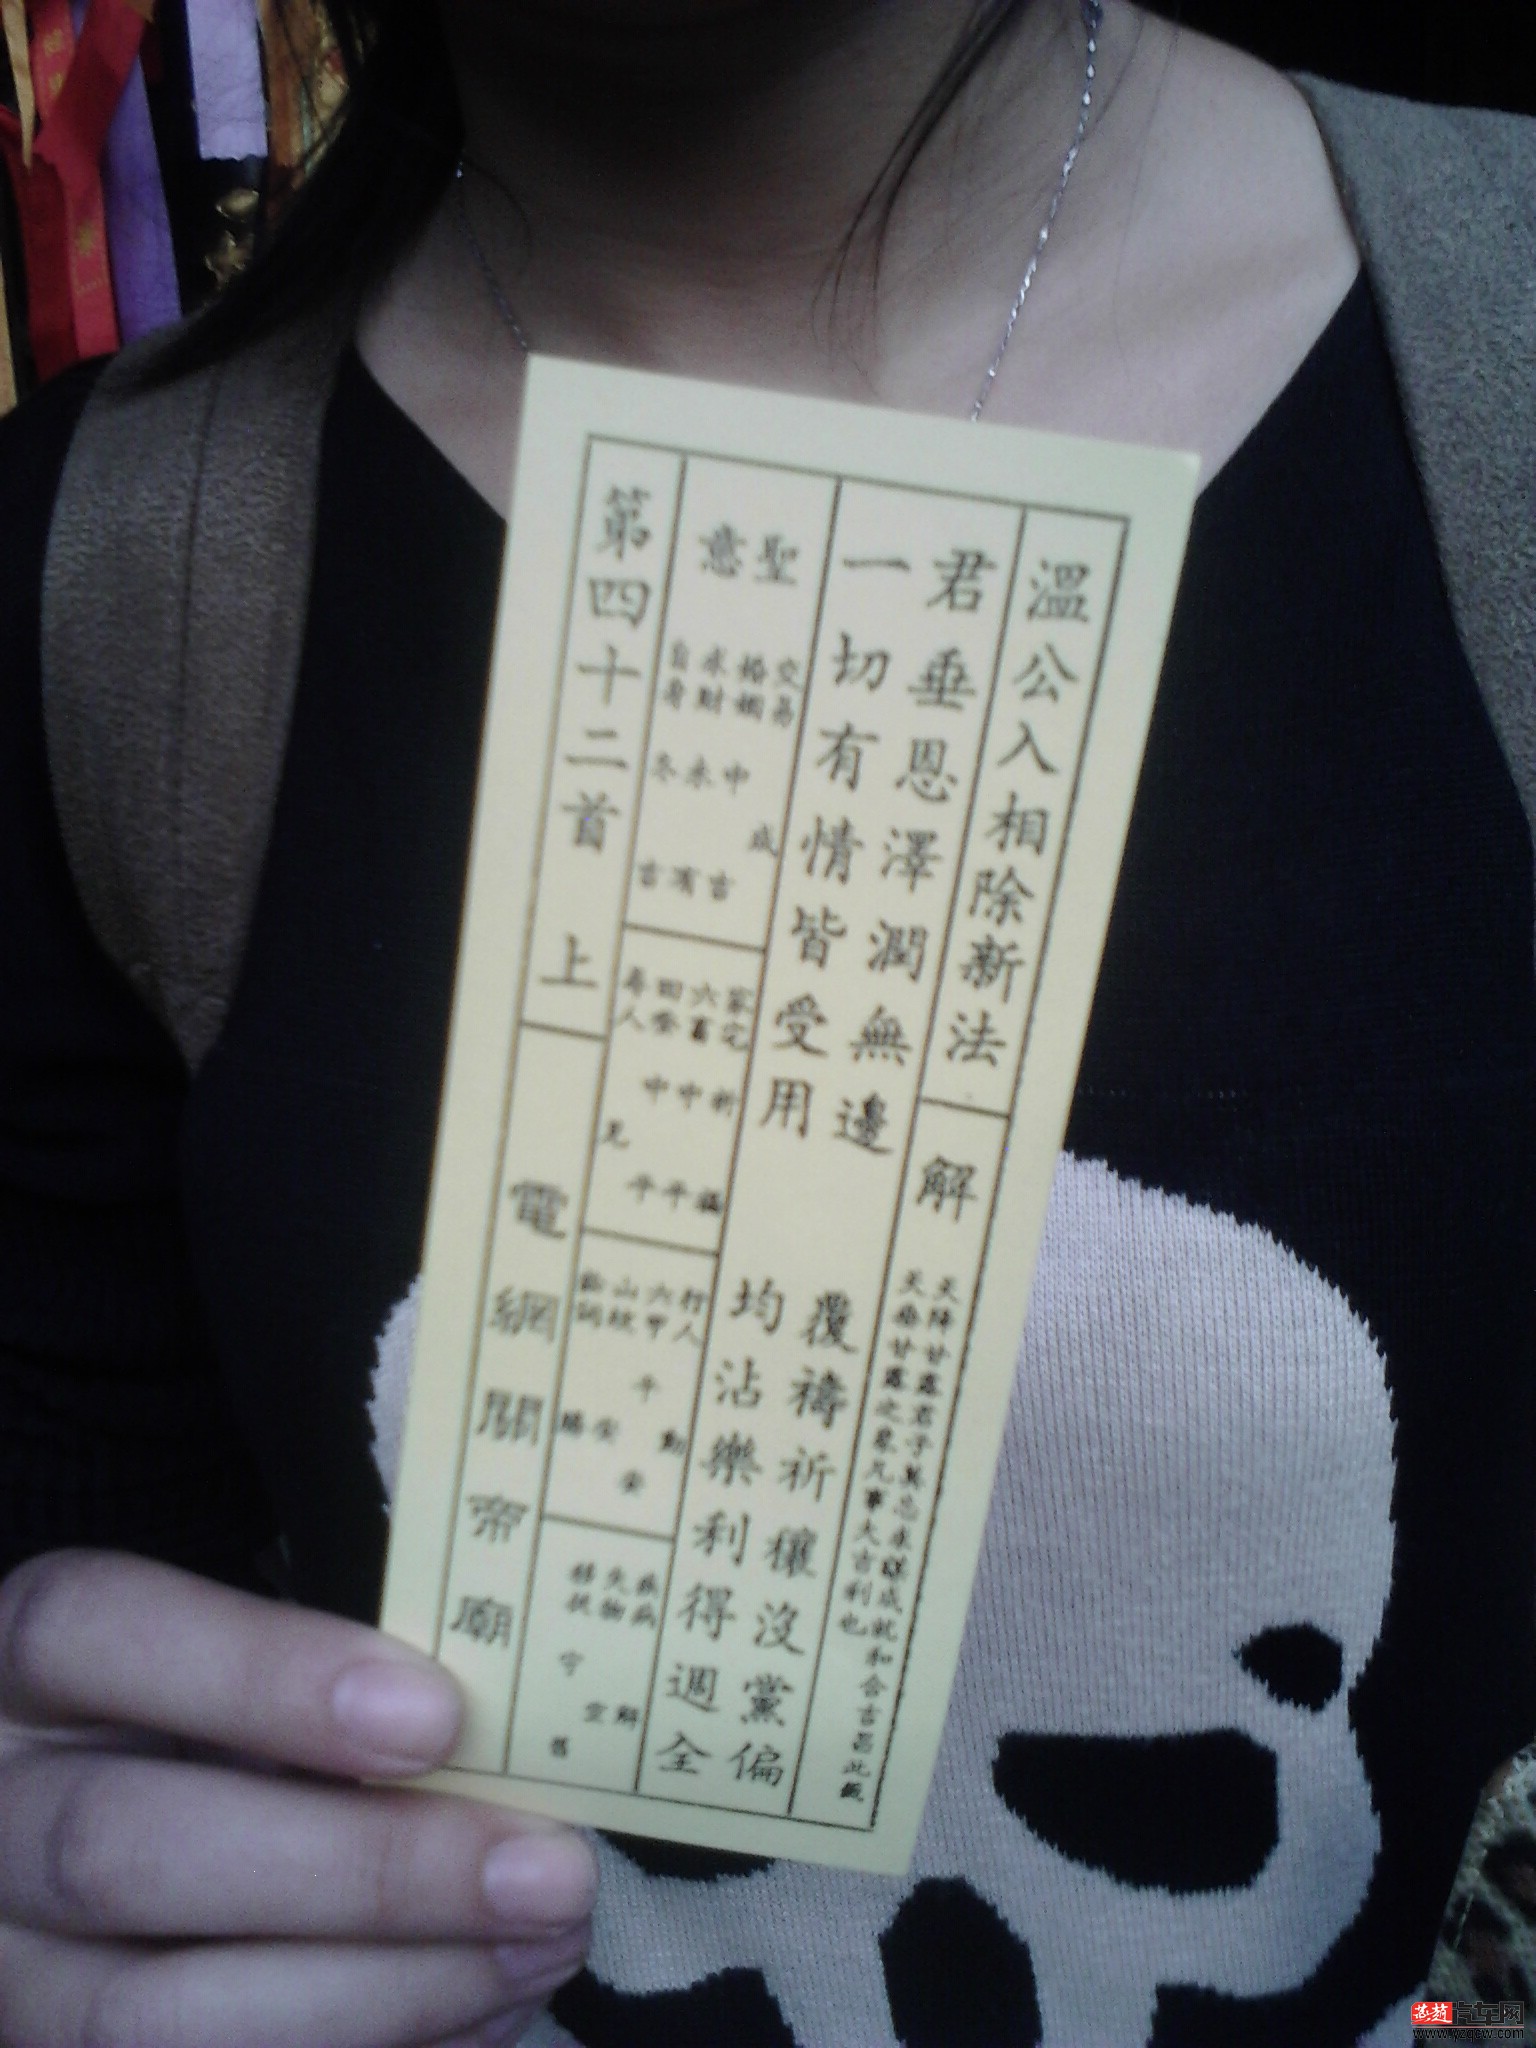 溫公入相除新法
解
天降甘露君子莫忘求謀成就和合吉昌此籤
天福甘露之象凡事大吉利也
君垂恩澤潤無邊
覆禱祈穰沒黨偏
一切有情皆受用
均沾樂利得週全
聖意
交易 成
婚姻 中吉
求財 未有
自身 冬吉
家宅 祈福
六畜 中平
田 中平
尋人 見
行人 動
六甲 平安
山坟 安
訟詞 勝
疾病 解
失物 空
移徙 宁舊
第四十二首 上
電網關帝廟
燕趙汽车网
www.yzqcw.com